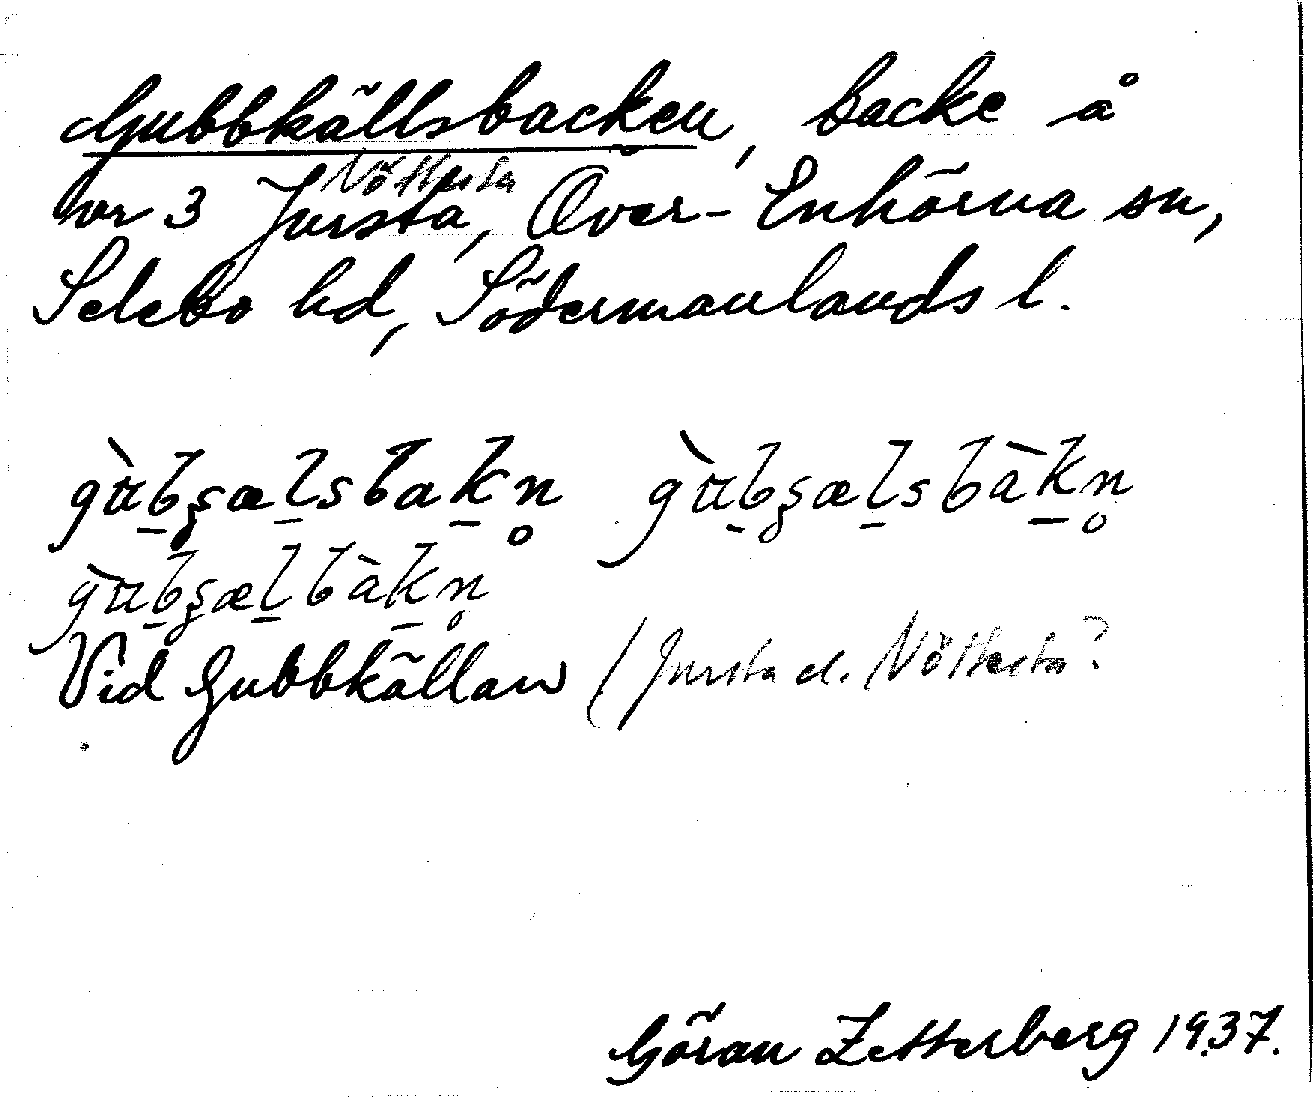 Gubbkällsbacken, backe å
Nöttesta
nr 3 Jursta, Över-Enhörna sn,
Selebo hd, Södermanlands l.
gùb̠ʂæl̠sbak̠n̥ gùb̠ʂæl̠sbàk̠n̥
gùb̠ʂæl̠bàk̠n̥
Vid Gubbkällan (Jursta el. Nöttesta?
Göran Zetterberg 1937.